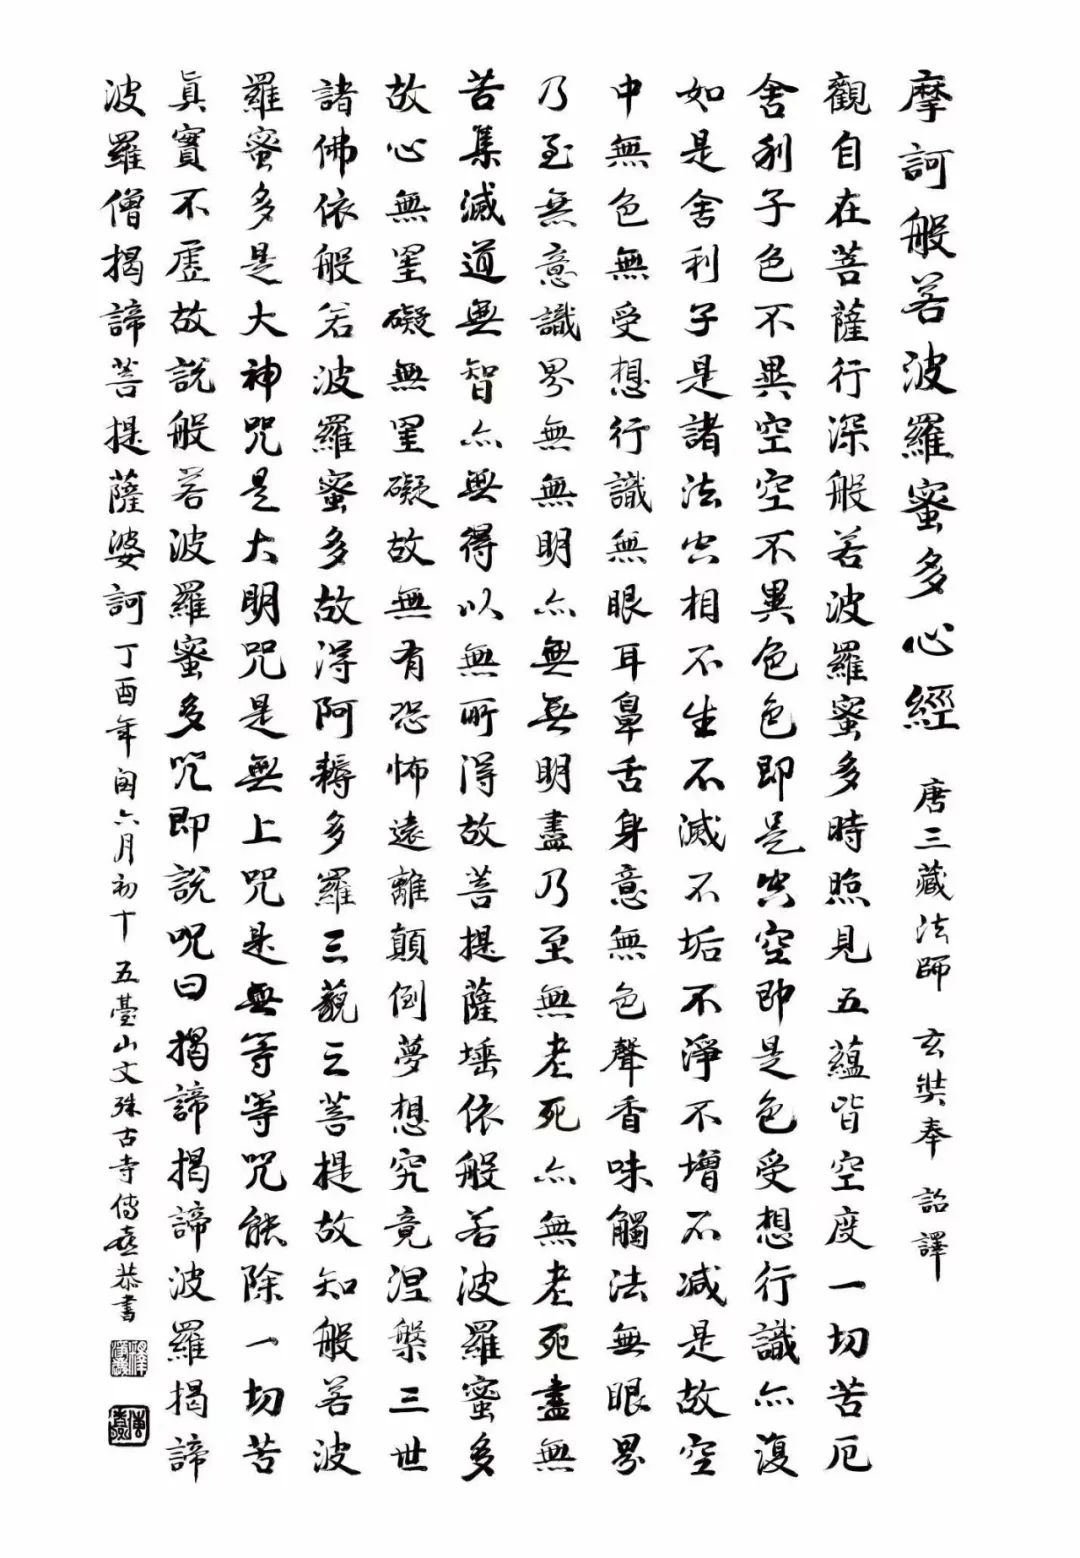 摩訶般若波羅蜜多心經 唐三藏法師 玄奘奉 詔譯
觀自在菩薩行深般若波羅蜜多時照見五蘊皆空度一切苦厄
舍利子色不異空空不異色色即是空空即是色受想行識亦復
如是舍利子是諸法空相不生不滅不垢不淨不增不減是故空
中無色無受想行識無眼耳鼻舌身意無色聲香味觸法無眼界
乃至無意識界無無明亦無無明盡乃至無老死亦無老死盡無
苦集滅道無智亦無得以無所得故菩提薩埵依般若波羅蜜多
故心無罣礙無罣礙故無有恐怖遠離顛倒夢想究竟涅槃三世
諸佛依般若波羅蜜多故得阿耨多羅三藐三菩提故知般若波
羅蜜多是大神咒是大明咒是無上咒是無等等咒能除一切苦
真實不虛故說般若波羅蜜多咒即說呪曰揭諦揭諦波羅揭諦
波羅僧揭諦菩提薩婆訶丁酉年閏六月初十五臺山文殊古寺傳意恭書